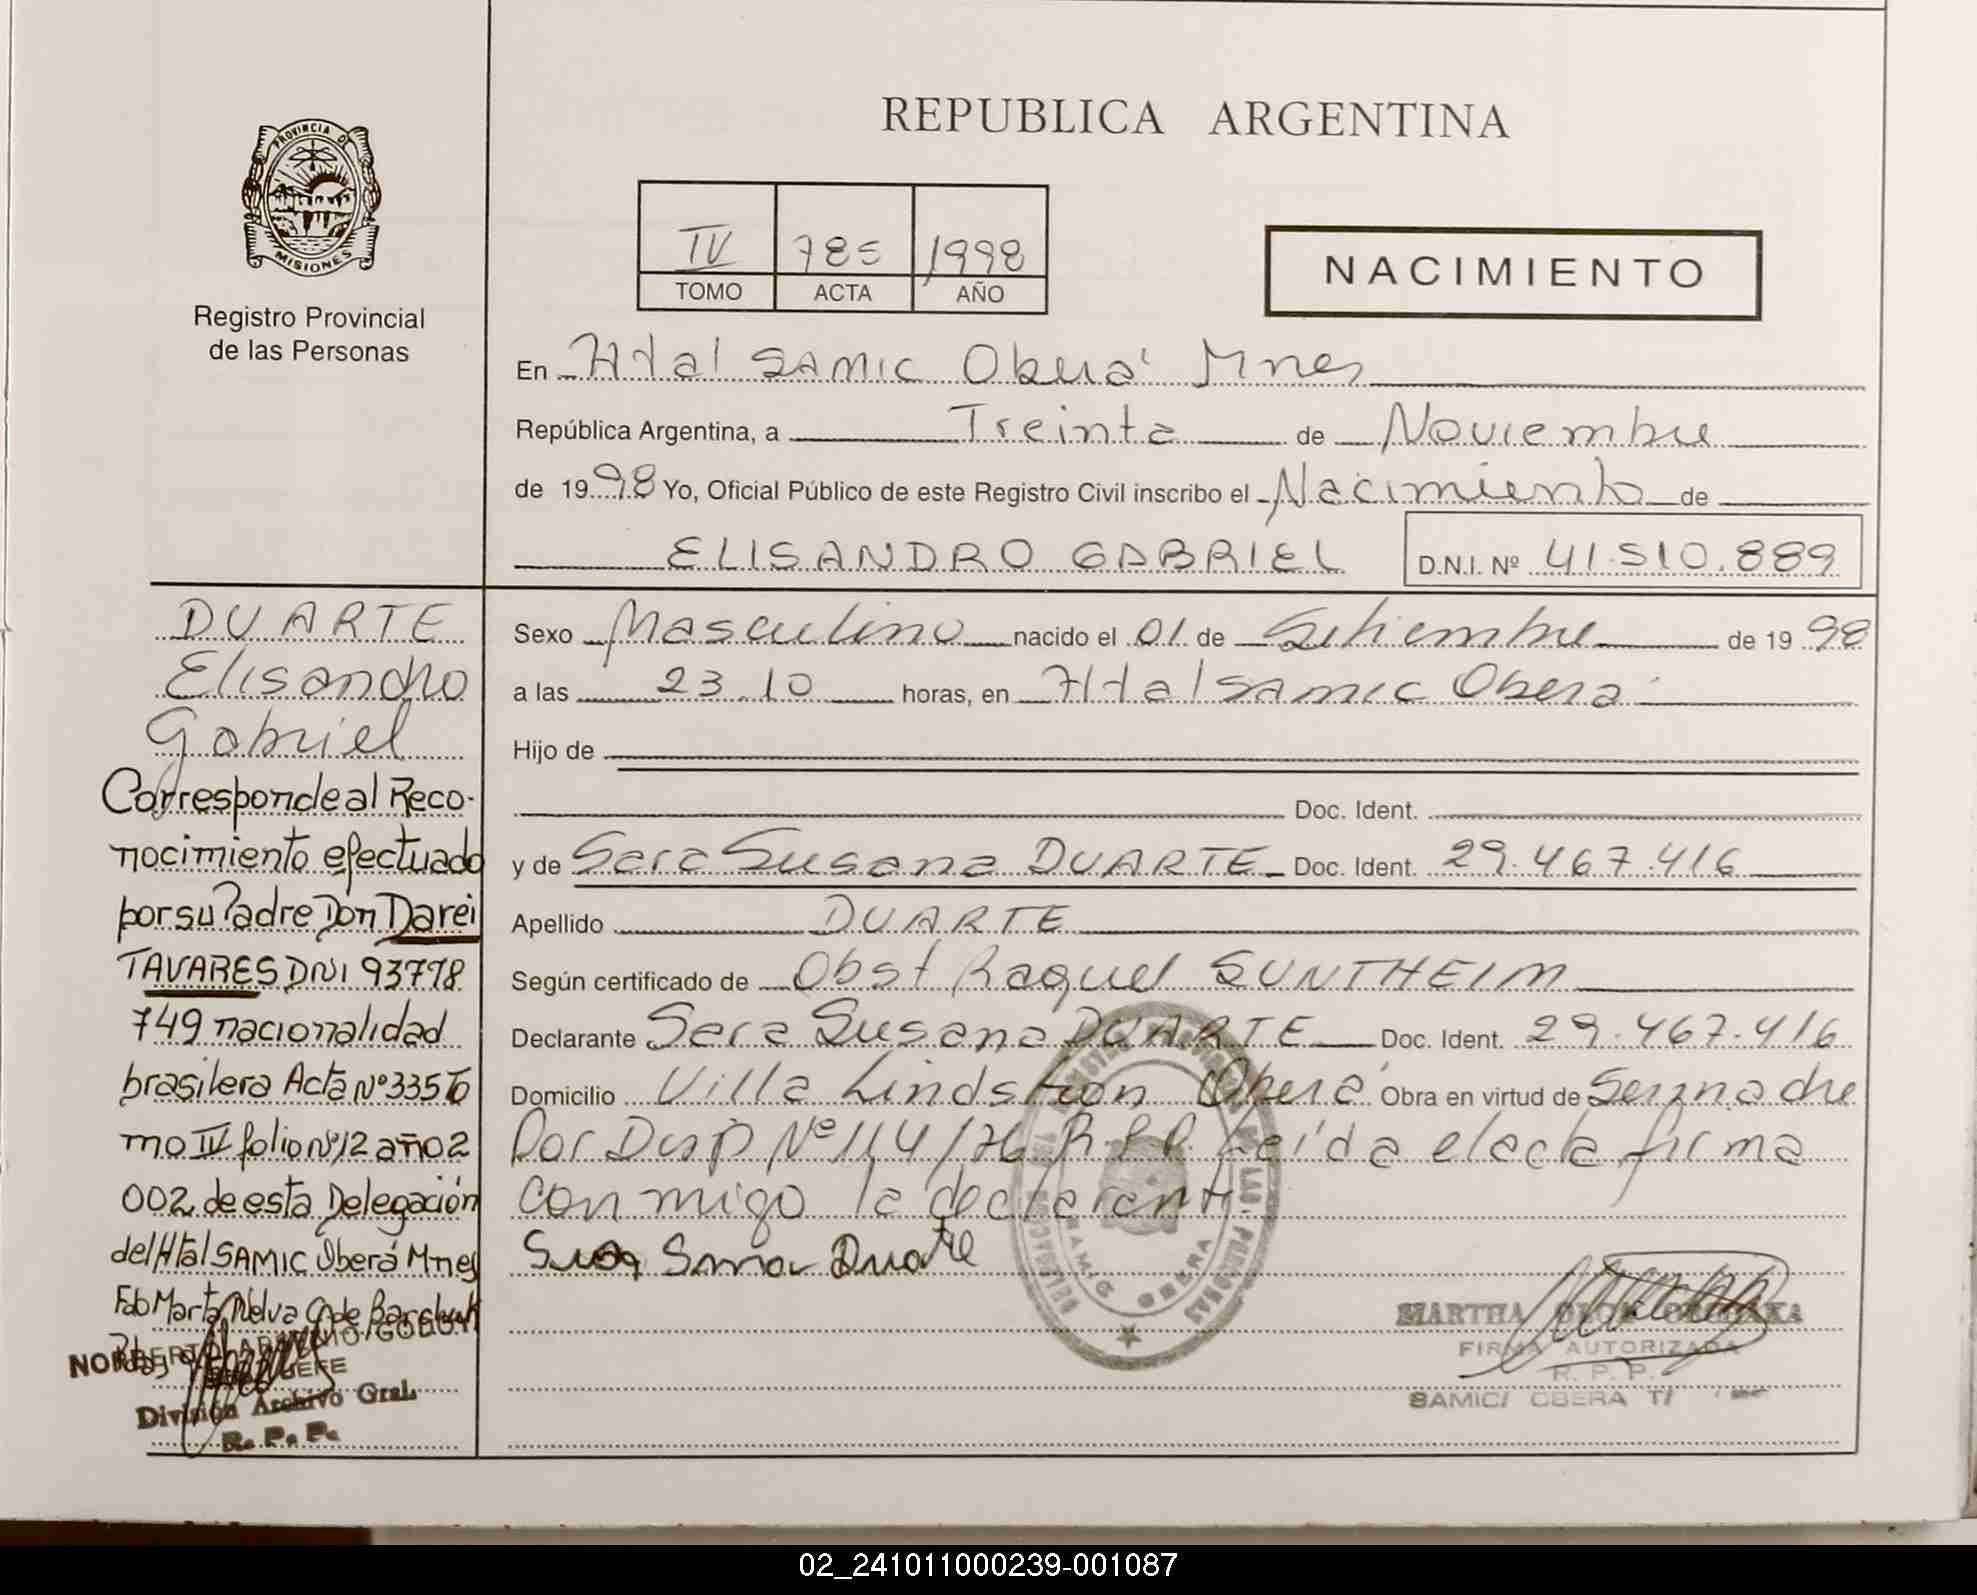 REPUBLICA ARGENTINA
PROVINCIA DE MISIONES
Registro Provincial
de las Personas
IV 785 1998
TOMO ACTA AÑO
NACIMIENTO
En Htal SAMIC Oberá Mnes
República Argentina, a Treinta de Noviembre
de 1998 Yo, Oficial Público de este Registro Civil inscribo el Nacimiento de
ELISANDRO GABRIEL D.N.I. Nº 41.510.889
DUARTE
Elisandro
Gabriel
Corresponde al Reco-
nocimiento efectuado
por su Padre Don Darei
TAVARES DNI 93778
749 nacionalidad
brasilera Acta Nº 335 To
mo IV folio Nº 12 año 2
002 de esta Delegación
del Htal SAMIC Oberá Mnes
Fdo Marta Nelva G de
NORBERTO GODOY
JEFE
División Archivo Gral.
R. P. P.
Sexo Masculino nacido el 01 de Setiembre de 1998
a las 23.10 horas, en Htal SAMIC Oberá
Hijo de
Doc. Ident.
y de Sara Susana DUARTE Doc. Ident. 29.467.416
Apellido DUARTE
Según certificado de Obst Raquel SUNTHEIM
Declarante Sara Susana DUARTE Doc. Ident. 29.467.416
Domicilio Villa Lindstron Oberá Obra en virtud de Ser madre
Por Disp Nº 114/76 R.P.P. Leída el acta firma
conmigo la declarante
Duarte
SAMIC OBERA
MARTHA
FIRMA AUTORIZADA
R. P. P.
SAMIC/ OBERA
02_241011000239-001087